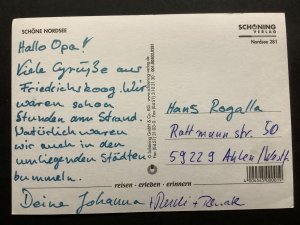 SCHÖNE NORDSEE
SCHÖNING
VERLAG
Nordsee 261
Hallo Opa!
Viele Grüße aus
Friedrichskoog. Wir
waren schon
Stunden am Strand.
Natürlich waren
wir auch in den
umliegenden Städten
bummeln.
Deine Johanna
Hans Rogalla
Rottmannstr. 50
59229 Ahlen/Westf
reisen · erleben · erinnern